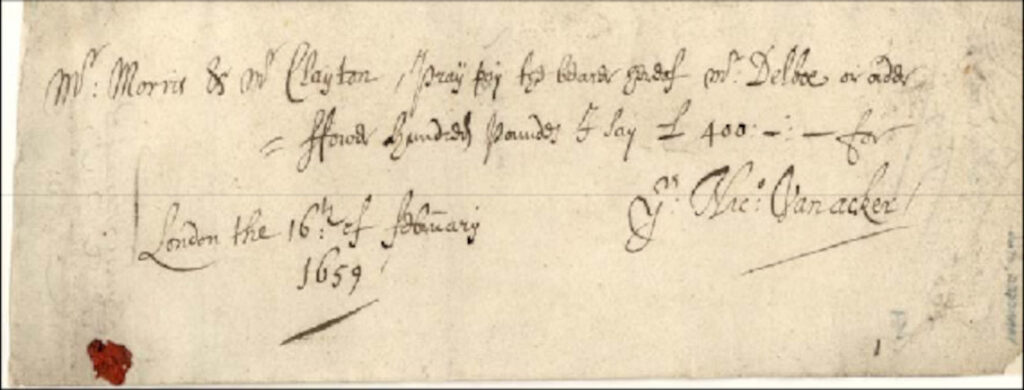 Mr: Morris & Mr Clayton, Pray pay the bearer hereof Mr. Delboe or order
= ffower hundred Pounds I say £ 400:—:— for
Yrs: Nic:o Vanacker
London the 16th: of february
1659
1